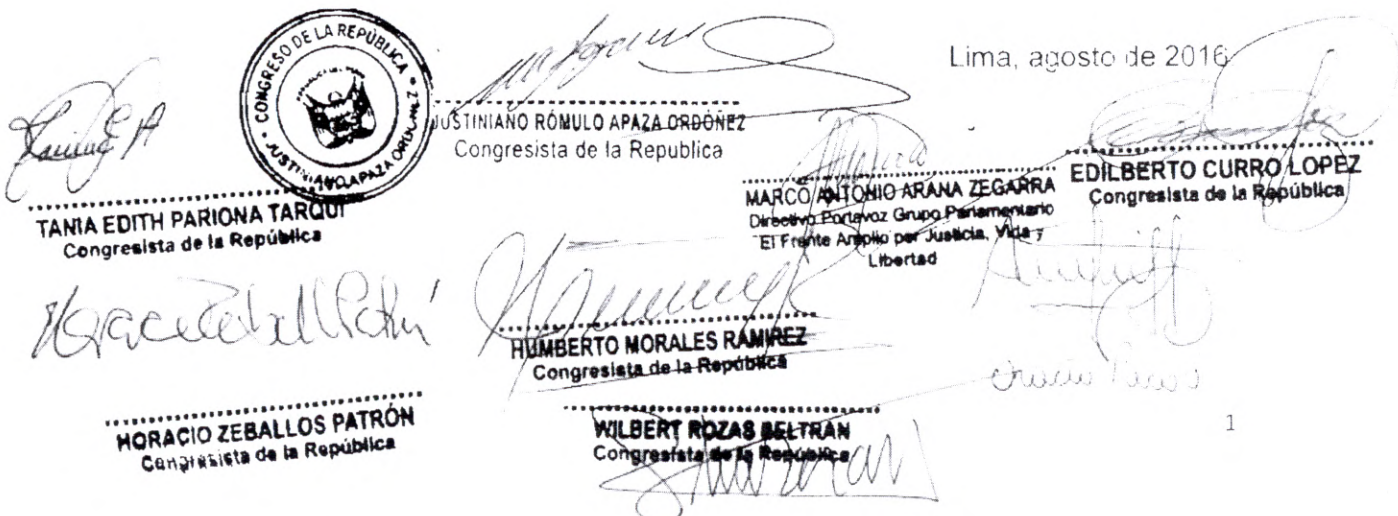 Lima, agosto de 2016
CONGRESO DE LA REPÚBLICA
JUSTINIANO APAZA ORDOÑEZ
JUSTINIANO RÓMULO APAZA ORDOÑEZ
Congresista de la Republica
TANIA EDITH PARIONA TARQUI
Congresista de la República
MARCO ANTONIO ARANA ZEGARRA
Directivo Portavoz Grupo Parlamentario
El Frente Amplio por Justicia, Vida y
Libertad
EDILBERTO CURRO LOPEZ
Congresista de la República
Horacio Zeballos Patrón
HORACIO ZEBALLOS PATRÓN
Congresista de la República
HUMBERTO MORALES RAMIREZ
Congresista de la República
WILBERT ROZAS BELTRAN
Congresista de la República
1